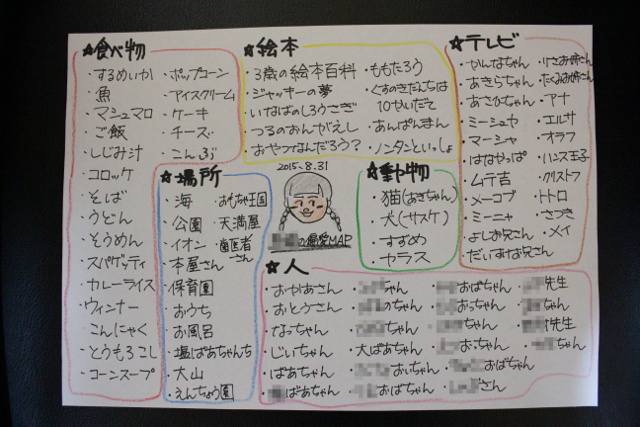 ☆食べ物
・するめいか
・魚
・マシュマロ
・ご飯
・しじみ汁
・コロッケ
・そば
・うどん
・そうめん
・スパゲッティ
・カレーライス
・ウィンナー
・こんにゃく
・とうもろこし
・コーンスープ
・ポップコーン
・アイスクリーム
・ケーキ
・チーズ
・こんぶ
☆絵本
・3歳の絵本百科
・ジャッキーの夢
・いなばのしろうさぎ
・つるのおんがえし
・おやつなんだろう?
・ももたろう
・くすのきだんちは
10かいだて
・あんぱんまん
・ノンタンといっしょ
☆テレビ
・かんなちゃん
・あきらちゃん
・あさひちゃん
・ミーシュヤ
・マーシャ
・はなかっぱ
・ムテ吉
・メーコブ
・ミーニャ
・よしお兄さん
・だいすけお兄さん
・りさお姉さん
・たくみお姉さん
・アナ
・エルサ
・オラフ
・ハンス王子
・クリストフ
・トトロ
・さつき
・メイ
☆場所
・海
・公園
・イオン
・本屋さん
・保育園
・おうち
・お風呂
・塩ばあちゃんち
・大山
・えんちょう園
・おもちゃ王国
・天満屋
・歯医者
さん
2015.8.31
の最愛MAP
☆動物
・猫(あきちゃん)
・犬(サスケ)
・すずめ
・カラス
☆人
・おかあさん
・おとうさん
・なっちゃん
・じいちゃん
・ばあちゃん
ばあちゃん
ちゃん
のちゃん
ちゃん
・大ばあちゃん
おいちゃん
おばちゃん
おばちゃん
おっちゃん
ちゃん
おにちゃん
おばちゃん
さん
先生
ちゃん
先生
ちゃん